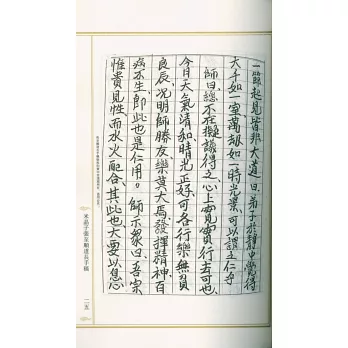 一歸起見皆非大道曰弟子於靜中覺得
大千如一室萬報如一時光景可以謂之仁乎
師曰總不在擬議得之心上實實行去可也
今日天氣清和晴光正好可各行樂無負
良辰況明師勝友樂莫大焉發揮精神百
病不生即此也是仁用。師示眾曰吾宗
惟貴見性而水火配合其此也大要以息心
米晶子張至順道長手稿
二五